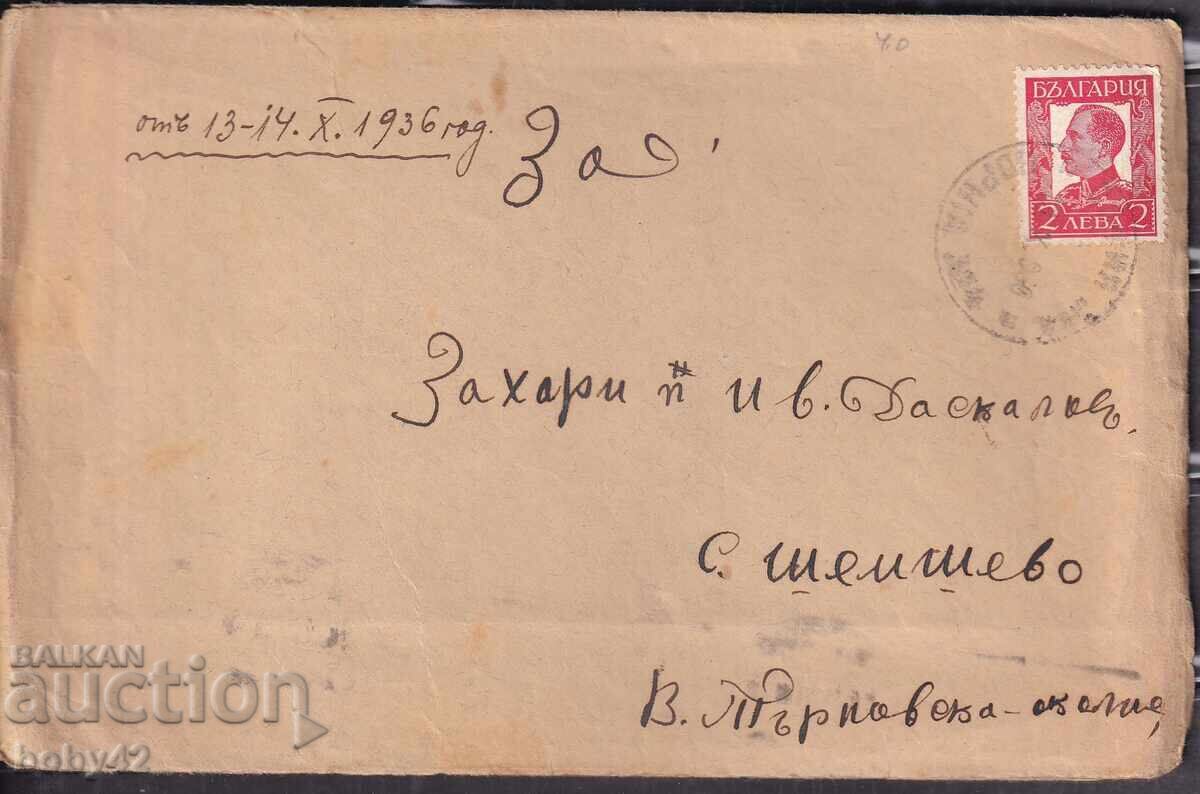 40
отъ 13-14. X. 1936 год.
За
БЪЛГАРИЯ
2 ЛЕВА 2
Захари п Ив. Даскаловъ.
с. Шемшево
В. Търновска-околия,
BALKAN
auction
boby42